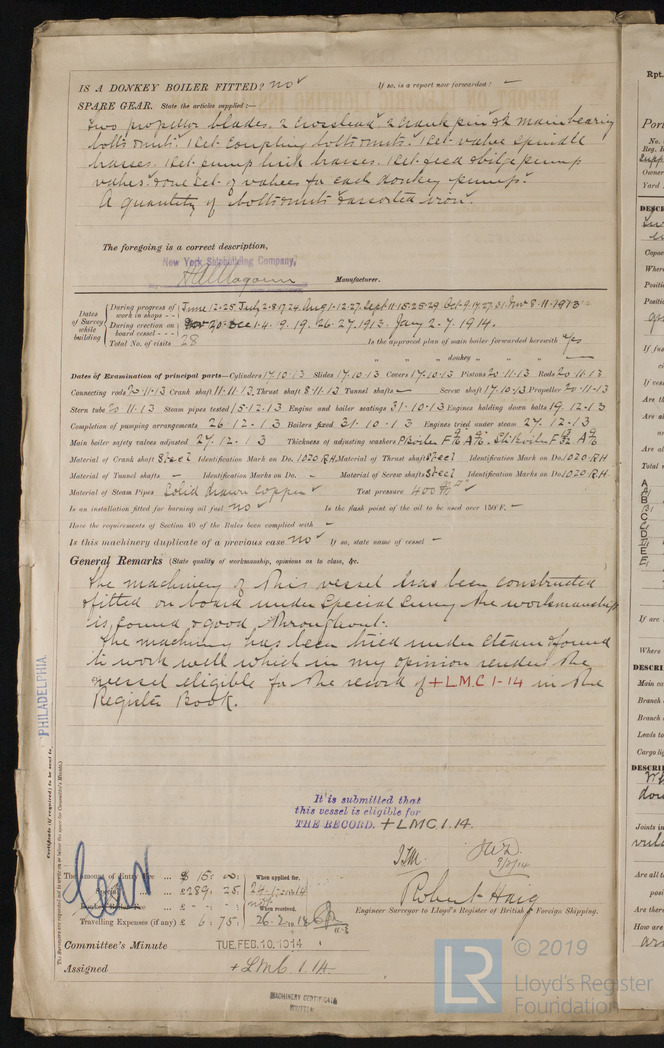 IS A DONKEY BOILER FITTED? no If so, is a report now forwarded? –
SPARE GEAR. State the articles supplied:—
Two propeller blades. 2 crosshead 2 crank pin & 2 main bearing
bolts & nuts. 1 set coupling bolts & nuts. 1 set valve spindle
brasses. 1 set pump link brasses. 1 set feed & bilge pump
valves & one set of valves for each donkey pump.
A quantity of bolts & nuts & assorted iron.
The foregoing is a correct description,
New York Shipbuilding Company,
Manufacturer.
Dates of Survey while building
During progress of work in shops - - June 12. 25 July 2. 8. 17. 24. Aug 1. 12. 27. Sept 11. 15. 25. 29. Oct. 9. 17. 27. 31. Nov 8. 11. 1913
During erection on board vessel - - - 20. Dec 1. 4. 9. 19. 26. 27. 1913. Jany 2. 7. 1914.
Total No. of visits 28 Is the approved plan of main boiler forwarded herewith Yes
" " " donkey " " " –
Dates of Examination of principal parts—Cylinders 17.10.13 Slides 17.10.13 Covers 17.10.13 Pistons 20.11.13 Rods 20.11.13
Connecting rods 20.11.13 Crank shaft 11.11.13 Thrust shaft 8.11.13 Tunnel shafts – Screw shaft 17.10.13 Propeller 20.11.13
Stern tube 20.11.13 Steam pipes tested 15.12.13 Engine and boiler seatings 31.10.13 Engines holding down bolts 19.12.13
Completion of pumping arrangements 26.12.13 Boilers fixed 31.10.13 Engines tried under steam 27.12.13
Main boiler safety valves adjusted 27.12.13 Thickness of adjusting washers
Material of Crank shaft Steel Identification Mark on Do. 1020 RH Material of Thrust shaft Steel Identification Mark on Do. 1020 RH
Material of Tunnel shafts – Identification Marks on Do. – Material of Screw shafts Steel Identification Marks on Do. 1020 RH
Material of Steam Pipes Solid drawn copper Test pressure 400
Is an installation fitted for burning oil fuel no Is the flash point of the oil to be used over 150°F. –
Have the requirements of Section 49 of the Rules been complied with –
Is this machinery duplicate of a previous case no If so, state name of vessel –
General Remarks (State quality of workmanship, opinions as to class, &c.
The machinery of this vessel has been constructed
& fitted on board under Special Survey the workmanship
is sound & good, throughout.
The machinery has been tried under steam & found
to work well which in my opinion renders the
vessel eligible for the record of +LMC 1-14 in the
Register Book.
PHILADELPHIA
It is submitted that
this vessel is eligible for
THE RECORD. +LMC 1.14.
J.W.D.
9/2/14
The amount of Entry Fee ... $ 15 : 00 : When applied for,
Special ... £ 289 : 25 :
Donkey Boiler Fee ... £ - : - : When received,
Travelling Expenses (if any) £ 6 : 75 :
Robert Haig
Engineer Surveyor to Lloyd's Register of British & Foreign Shipping.
Committee's Minute TUE. FEB. 10. 1914
Assigned +LMC 1.14.
MACHINERY CERTIFICATE
WRITTEN
© 2019
LR
Lloyd's Register
Foundation